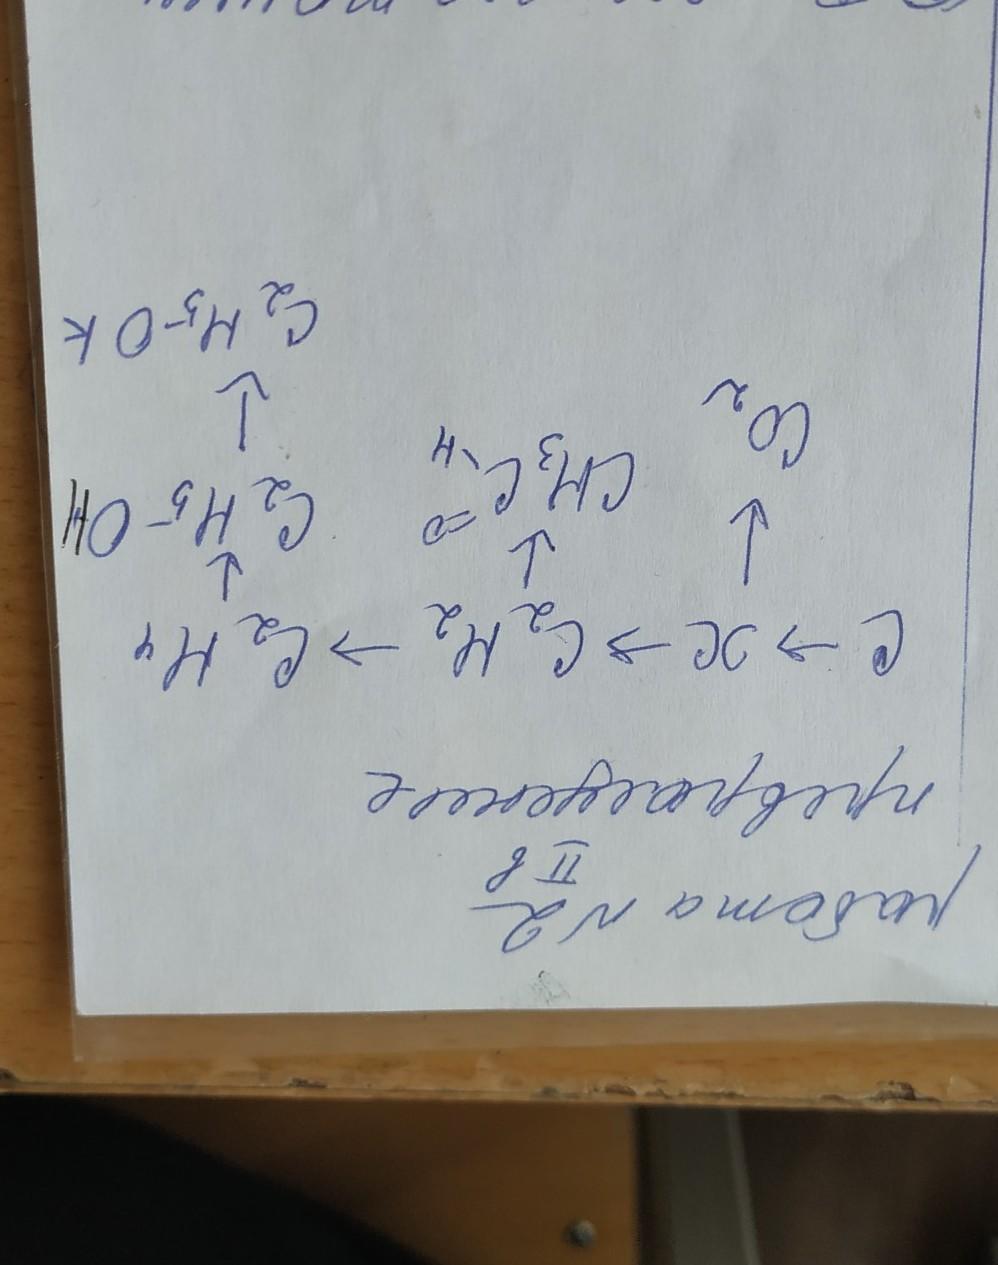 работа №2
II в
превращение
C → X → C₂H₂ → C₂H₄
↓ ↓ ↓
CO₂ CH₃C=O-H C₂H₅-OH
↓
C₂H₅-OK